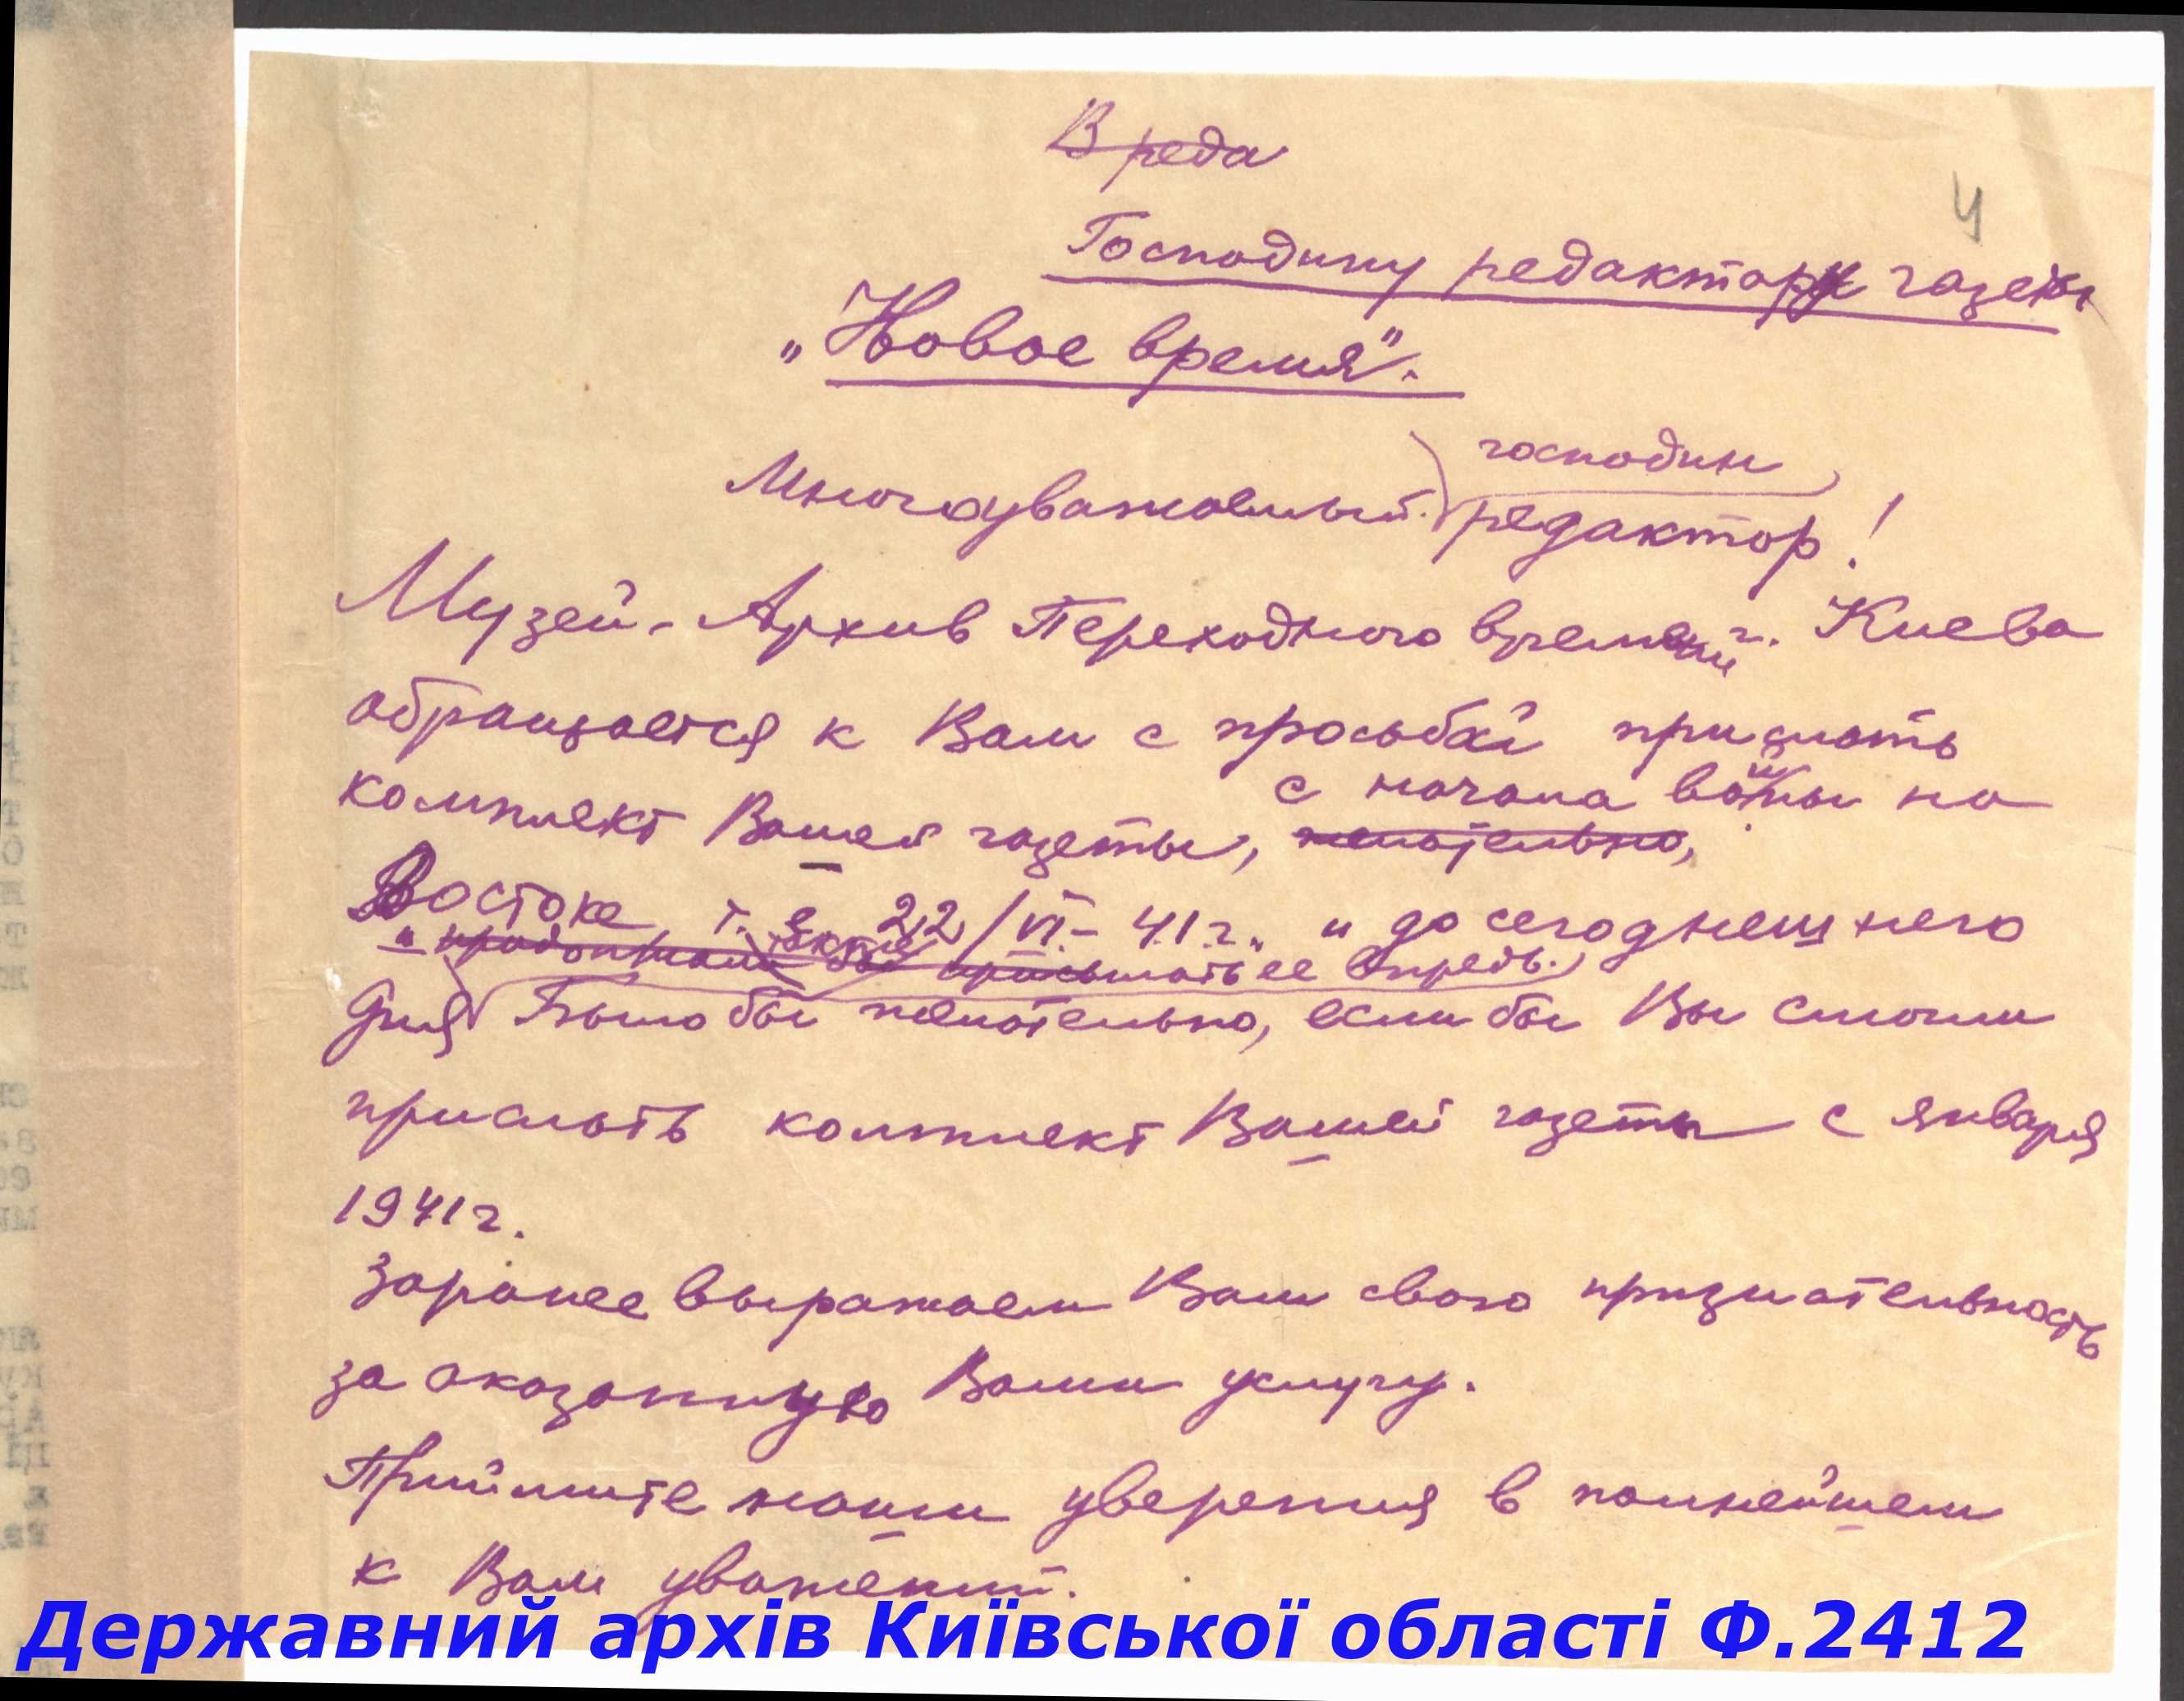 В реда
4
Господину редактору газеты
„Новое время".
господин
Многоуважаемый редактор!
Музей-Архив Переходного времени г. Киева
обращается к Вам с просьбой прислать
с начала войны на
комплект Вашей газеты, желательно,
Востоке т. е. 22/VI - 41 г. и до сегоднешнего
и продолжали бы присылать ее впредь.
дня Было бы желательно, если бы Вы смогли
прислать комплект Вашей газеты с января
1941 г.
Заранее выражаем Вам свою признательность
за оказанную Вами услугу.
Примите наши уверения в полнейшем
к Вам уважении.
Державний архів Київської області Ф.2412